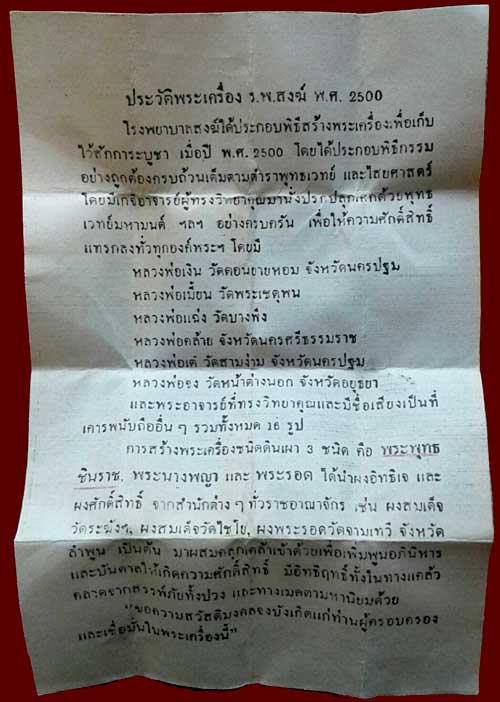 ประวัติพระเครื่อง ร.พ.สงฆ์ พ.ศ. 2500
โรงพยาบาลสงฆ์ได้ประกอบพิธีสร้างพระเครื่องเพื่อเก็บ
ไว้สักการะบูชา เมื่อปี พ.ศ. 2500 โดยได้ประกอบพิธีกรรม
อย่างถูกต้องครบถ้วนเต็มตามตำราพุทธเวทย์ และไสยศาสตร์
โดยมีเกจิอาจารย์ผู้ทรงวิทยาคุณมานั่งปรกปลุกเสกด้วยพุทธ
เวทย์มหามนต์ ฯลฯ อย่างครบครัน เพื่อให้ความศักดิ์สิทธิ์
แทรกลงทั่วทุกองค์พระฯ โดยมี
หลวงพ่อเงิน วัดดอนยายหอม จังหวัดนครปฐม
หลวงพ่อเมี้ยน วัดพระเชตุพน
หลวงพ่อแฉ่ง วัดบางพัง
หลวงพ่อคล้าย จังหวัดนครศรีธรรมราช
หลวงพ่อเต๋ วัดสามง่าม จังหวัดนครปฐม
หลวงพ่อจง วัดหน้าต่างนอก จังหวัดอยุธยา
และพระอาจารย์ที่ทรงวิทยาคุณและมีชื่อเสียงเป็นที่
เคารพนับถืออื่น ๆ รวมทั้งหมด 16 รูป
การสร้างพระเครื่องชนิดดินเผา 3 ชนิด คือ พระพุทธ
ชินราช, พระนางพญา และ พระรอด ได้นำผงอิทธิเจ และ
ผงศักดิ์สิทธิ์ จากสำนักต่าง ๆ ทั่วราชอาณาจักร เช่น ผงสมเด็จ
วัดระฆังฯ, ผงสมเด็จวัดไชโย, ผงพระรอดวัดจามเทวี จังหวัด
ลำพูน เป็นต้น มาผสมคลุกเคล้าเข้าด้วยเพื่อเพิ่มพูนอภินิหาร
และบันดาลให้เกิดความศักดิ์สิทธิ์ มีอิทธิฤทธิ์ทั้งในทางแคล้ว
คลาดจากสรรพภัยทั้งปวง และทางเมตตามหานิยมด้วย
"ขอความสวัสดิมงคลจงบังเกิดแก่ท่านผู้ครอบครอง
และเชื่อมั่นในพระเครื่องนี้"